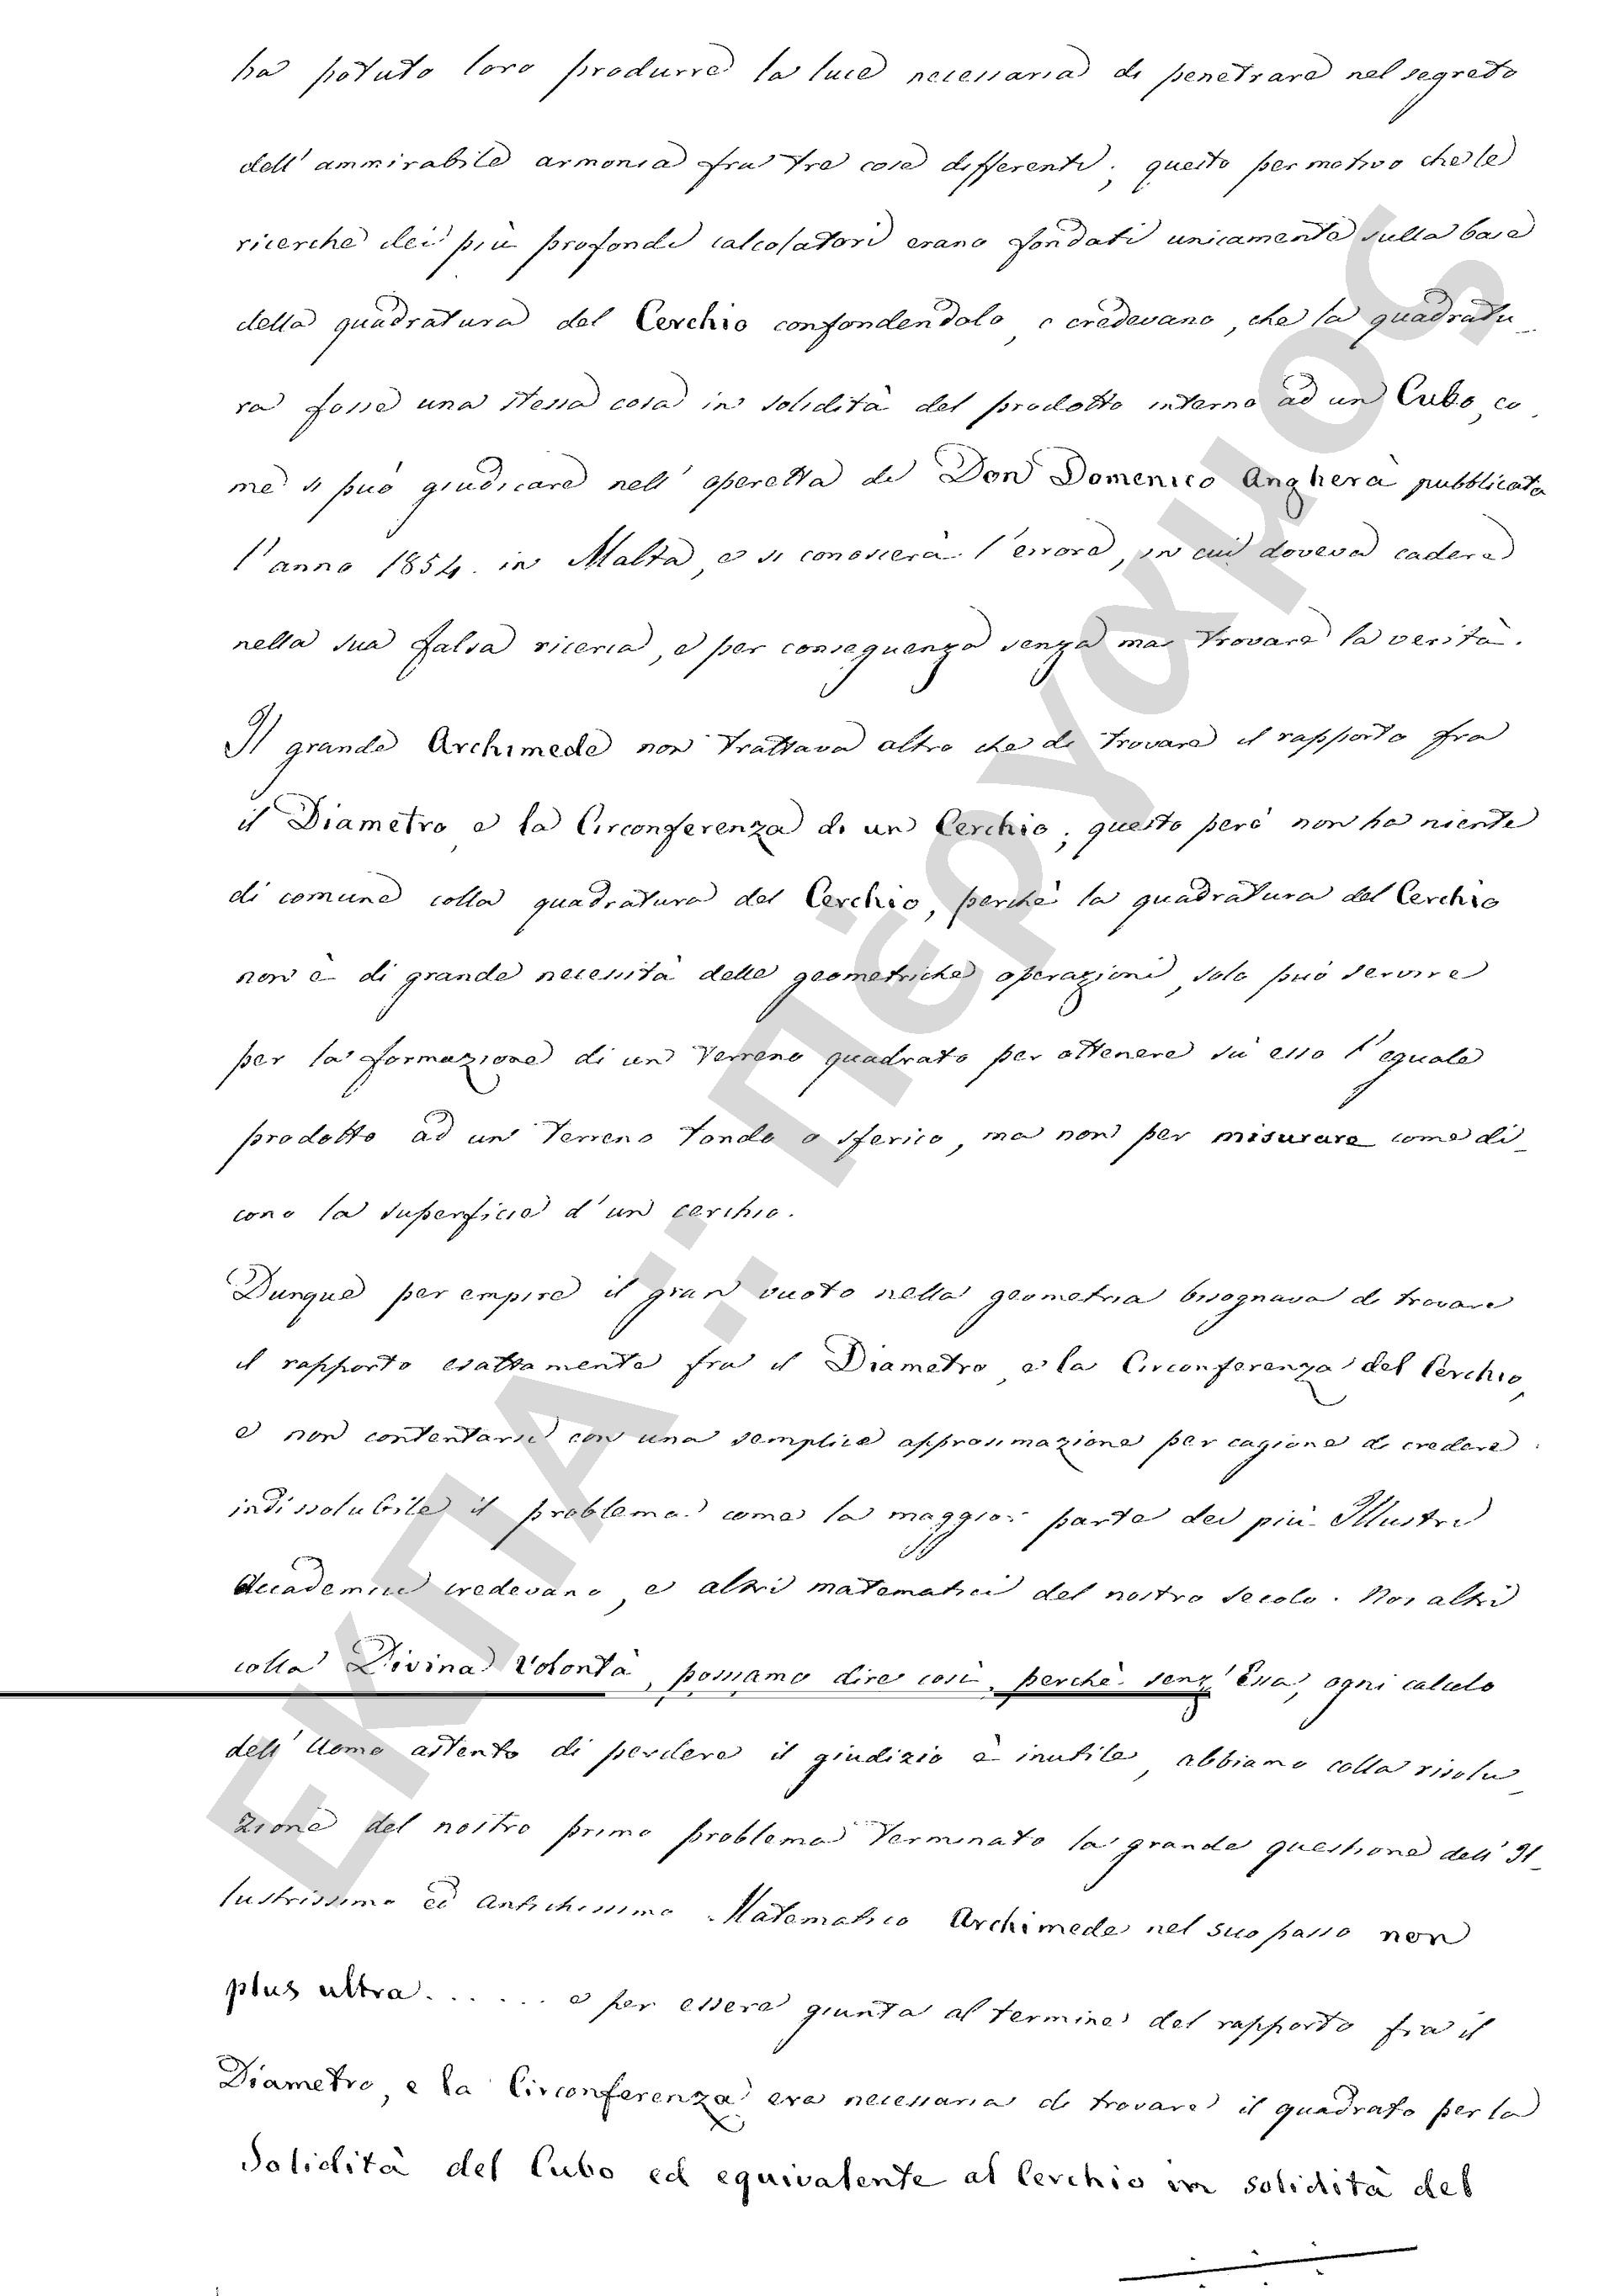 ha potuto loro produrre la luce necessaria di penetrare nel segreto
dell' ammirabile armonia fra tre cose differenti; questo per motivo che le
ricerche dei più profondi calcolatori erano fondati unicamente sulla base
della quadratura del Cerchio confondendolo, e credevano, che la quadratu_
ra fosse una stessa cosa in solidità del prodotto interno ad un Cubo, co_
me si può giudicare nell' operetta di Don Domenico Angherà pubblicata
l' anno 1854. in Malta, e si conoscerà l' errore, in cui doveva cadere
nella sua falsa ricerca, e per conseguenza senza mai trovare la verità.
Il grande Archimede non trattava altro che di trovare il rapporto fra
il Diametro e la Circonferenza di un Cerchio; questo però non ha niente
di comune colla quadratura del Cerchio, perchè la quadratura del Cerchio
non è di grande necessità delle geometriche operazioni, solo può servire
per la formazione di un Terreno quadrato per ottenere sù esso l' eguale
prodotto ad un Terreno tondo o sferico, ma non per misurare come di_
cono la superficie d' un cerchio.
Dunque per empire il gran vuoto nella geometria bisognava di trovare
il rapporto esattamente fra il Diametro, e la Circonferenza del Cerchio,
e non contentarsi con una semplice approsimazione per cagione di credere
indissolubile il problema come la maggior parte dei più Illustri
Accademici credevano, e altri matematici del nostro secolo. Noi altri
colla Divina Volontà, possiamo dire così, perchè senz' Essa, ogni calcolo
dell' Uomo attento di perdere il giudizio è inutile, abbiamo colla risolu_
zione del nostro primo problema terminato la grande questione dell' Il_
lustrissimo ed Antichissimo Matematico Archimede nel suo passo non
plus ultra. . . . . . e per essere giunta al termine del rapporto fra il
Diametro, e la Circonferenza era necessaria di trovare il quadrato per la
Solidità del Cubo ed equivalente al Cerchio in solidità del
ΕΚΠΑ.: Πέργαμος